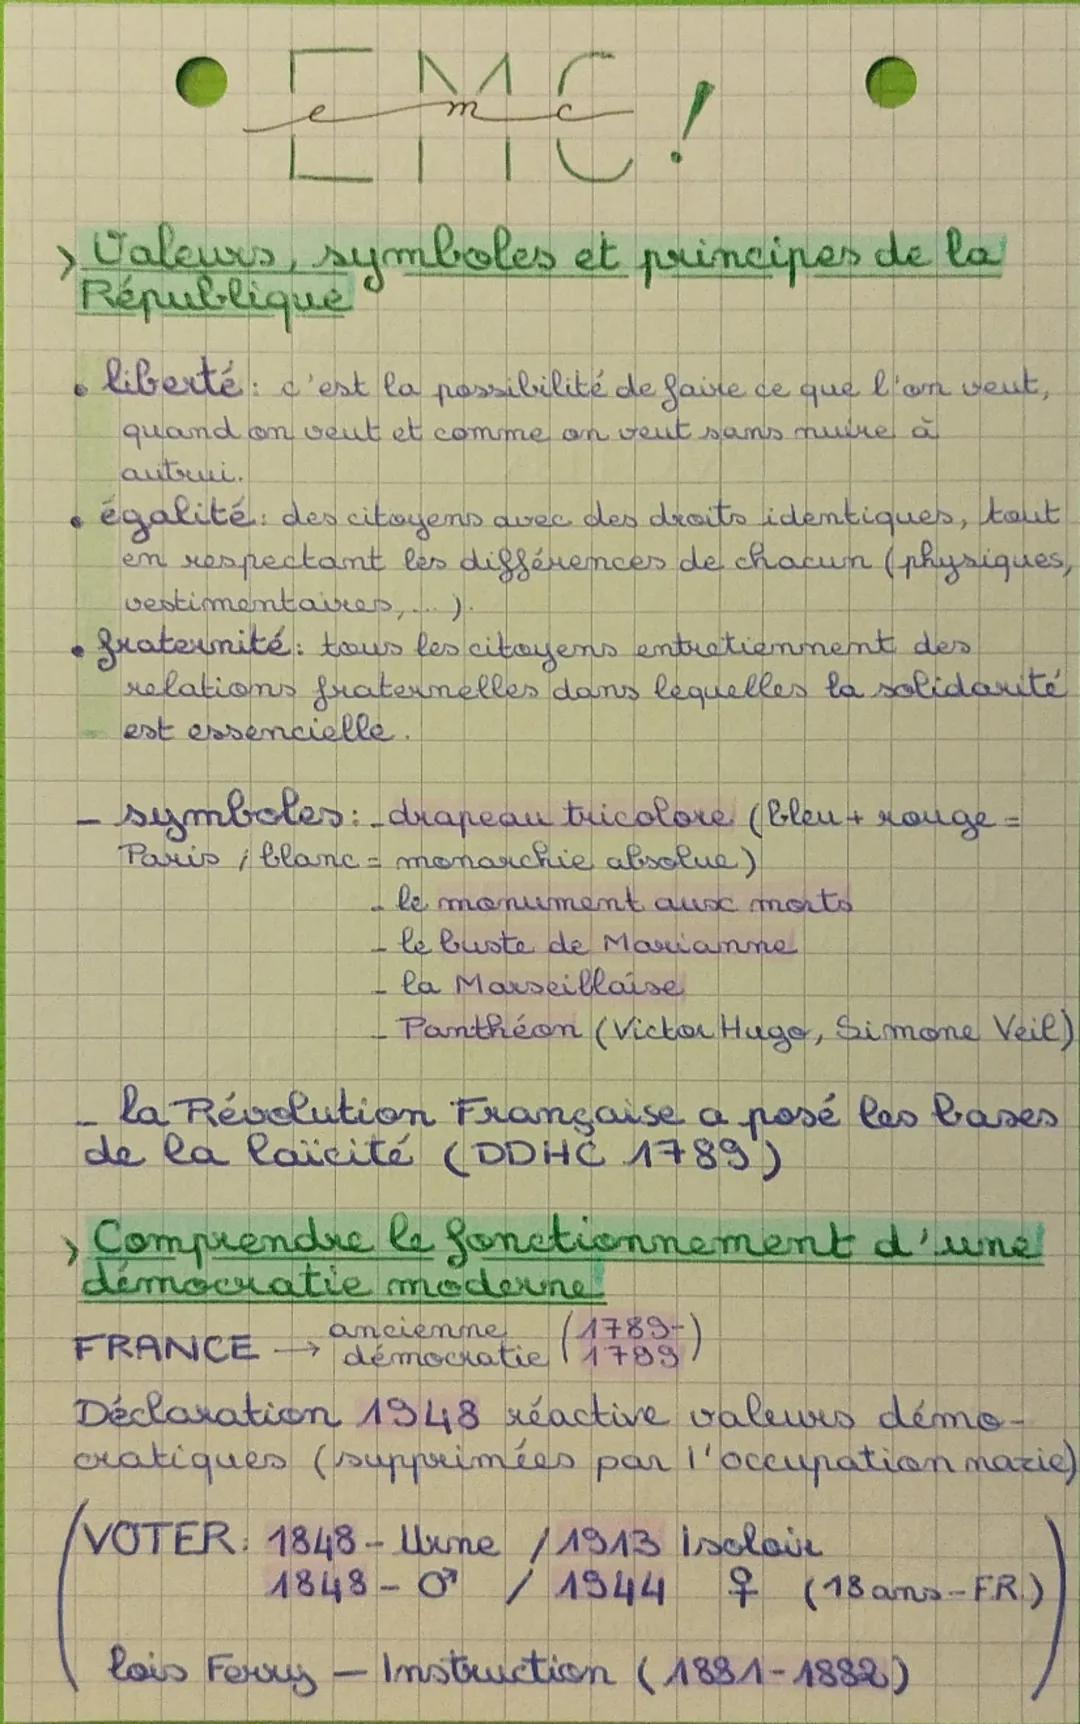 EMC !
e m c
> Valeurs, symboles et principes de la
République
• liberté : c'est la possibilité de faire ce que l'on veut,
quand on veut et comme on veut sans nuire à
autrui.
• égalité : des citoyens avec des droits identiques, tout
en respectant les différences de chacun (physiques,
vestimentaires, ...).
• fraternité : tous les citoyens entretiennent des
relations fraternelles dans lequelles la solidarité
est essencielle.
- symboles : - drapeau tricolore (bleu + rouge =
Paris ; blanc = monarchie absolue)
- le monument aux morts
- le buste de Marianne
- la Marseillaise
- Panthéon (Victor Hugo, Simone Veil)
- la Révolution Française a posé les bases
de la laïcité (DDHC 1789)
> Comprendre le fonctionnement d'une
démocratie moderne
FRANCE → ancienne démocratie (1789-1799)
Déclaration 1948 réactive valeurs démo-
cratiques (supprimées par l'occupation nazie)
(VOTER : 1848 - Urne / 1913 Isoloir
1848 - ♂ / 1944 ♀ (18 ans - FR.)
lois Ferry - Instruction (1881-1882))